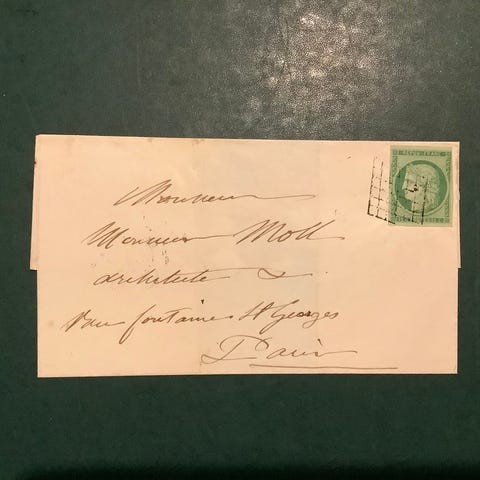 REPUB. FRANC.
Monsieur
Monsieur Moll
architecte
Rue fontaine St Georges
Paris